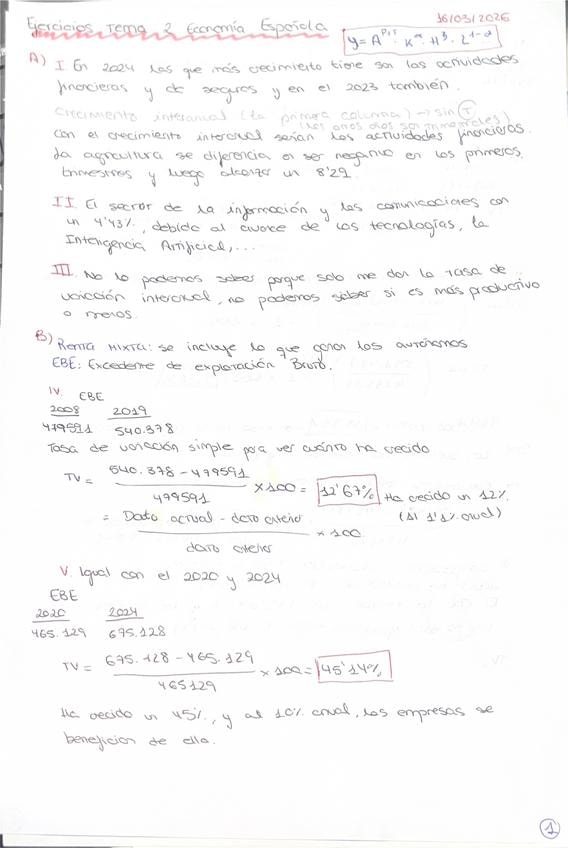 Ejercicios Tema 2 Economía Española
16/03/2026
y = A^PTF · K^α · H^β · L^1-α
A) I En 2024 las que más crecimiento tiene son las actividades
financieras y de seguros y en el 2023 también.
Crecimiento interanual (la primera columna) → sin (T)
(las otras dos son trimestrales)
Con el crecimiento interanual serían las actividades financieras.
La agricultura se diferencia al ser negativo en los primeros
trimestres y luego alcanzar un 8'29.
II El sector de la información y las comunicaciones con
un 4'43%, debido al avance de las tecnologías, la
Inteligencia Artificial,...
III. No lo podemos saber porque solo me dan la tasa de
variación interanual, no podemos saber si es más productivo
o menos.
B) Renta Mixta: se incluye lo que ganan los autónomos
EBE: Excedente de explotación Bruto.
IV. EBE
2008 2019
479591 540.378
Tasa de variación simple para ver cuánto ha crecido
TV = 540.378 - 479591 / 479591 × 100 = 12'67% Ha crecido un 12%
(Al 1'1% anual)
= Dato actual - dato anterior / dato anterior × 100
V. Igual con el 2020 y 2024
EBE
2020 2024
465.129 675.128
TV = 675.128 - 465.129 / 465129 × 100 = 45'14%
Ha crecido un 45%, y al 10% anual, las empresas se
benefician de ello.
1